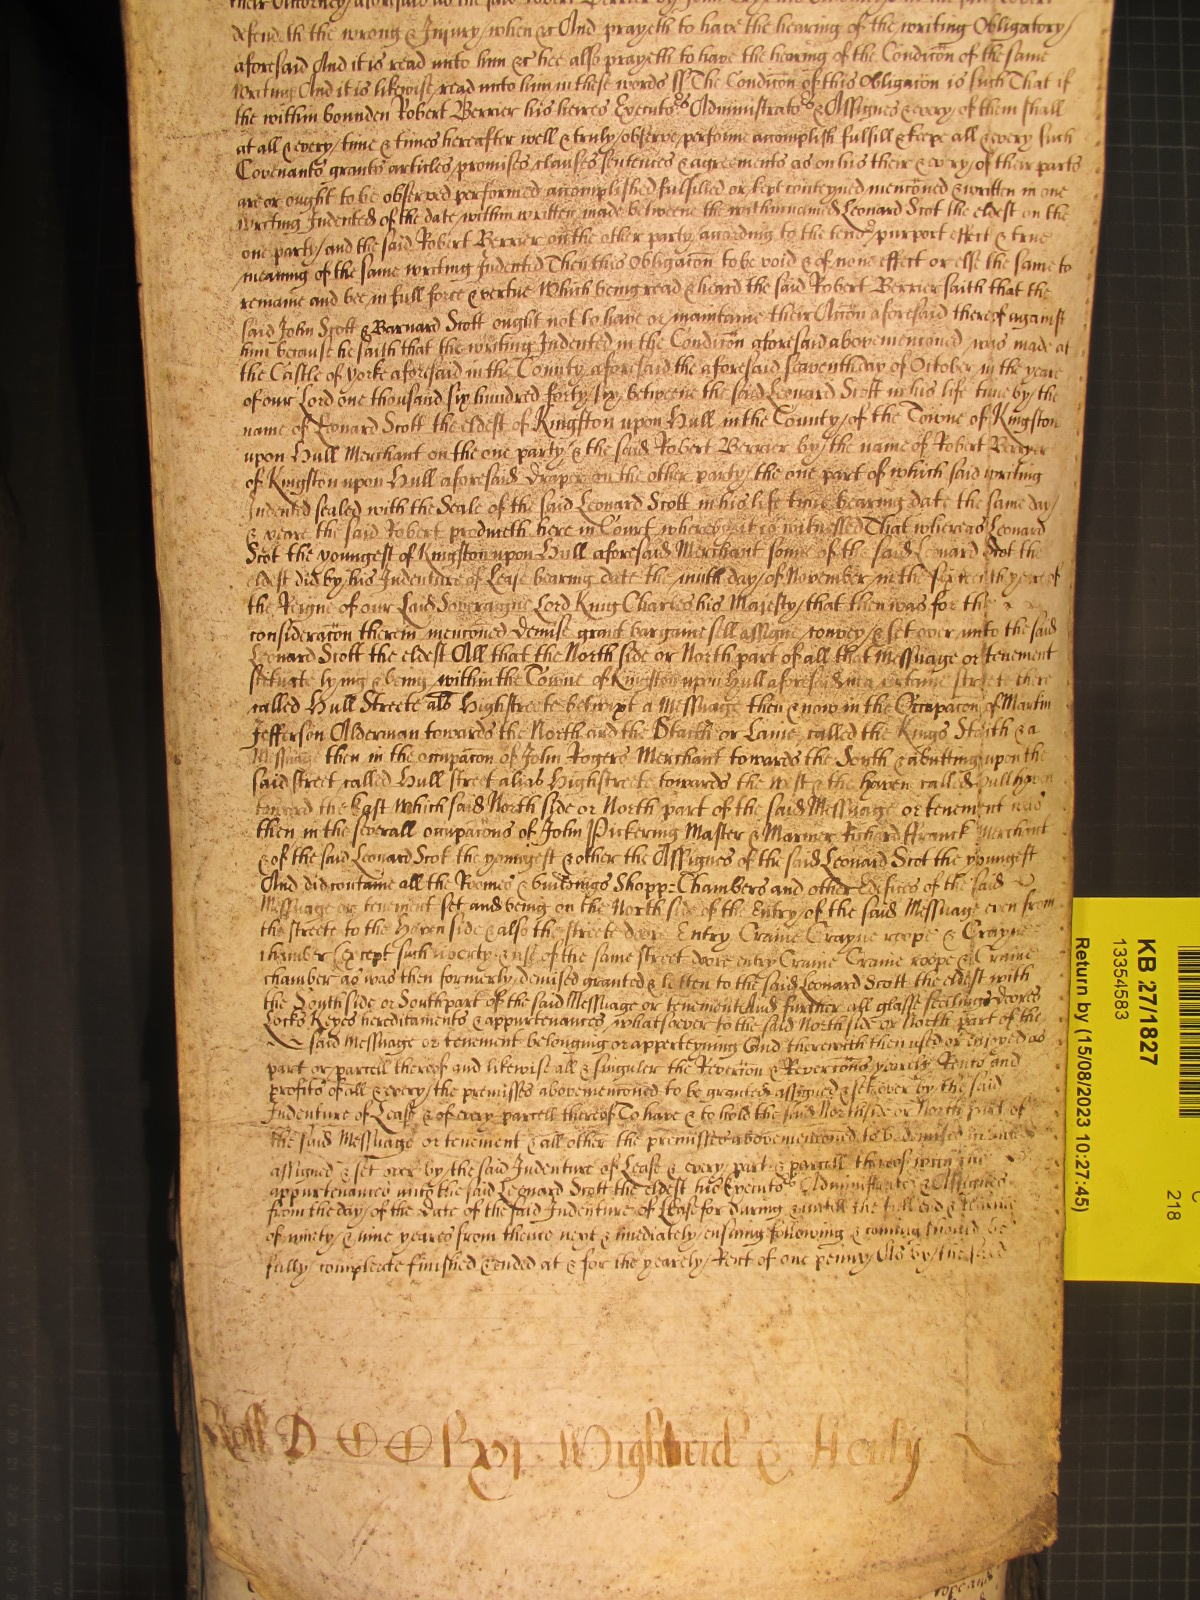 their Attorney aforesaid
defendeth the wrong & Injury when &c And prayeth to have the hearing of the writing Obligatory
aforesaid And it is read unto him &c hee also prayeth to have the hearing of the Condicõn of the same
writing And it is likewise read unto him in these words ss The Condicõn of this Obligacõn is such That if
the within bounden Robert Berrier his heires Executors Administrators & Assignes & every of them shall
at all & every time & times hereafter well & truly observe performe accomplish fulfill & keepe all & every such
Covenants grants articles promises clauses sentences & agreements as on his their & every of their parts
are or ought to be observed performed accomplished fulfilled or kept conteyned menconed & written in one
writing Indented of the date within written made betweene the within named Leonard Scot the eldest on the
one party and the said Robert Berrier on the other party according to the tenor purport effect & true
meaning of the same writing Indented Then this Obligacõn to be void & of none effect or else the same to
remaine and bee in full force & vertue Which being read & heard the said Robert Berrier saith that the
said John Scott & Barnard Scott ought not to have or maintaine their Acõn aforesaid thereof against
him because he saith that the writing Indented in the Condicõn aforesaid above mencioned was made at
the Castle of Yorke aforesaid in the County aforesaid the aforesaid seaventh day of October in the yeare
of our Lord one thousand six hundred forty six betweene the said Leonard Scott in his life time by the
name of Leonard Scott the eldest of Kingston upon Hull in the County of the Towne of Kingston
upon Hull Merchant on the one party & the said Robert Berrier by the name of Robert Berryer
of Kingston upon Hull aforesaid Draper on the other party the one part of which said writing
Indented sealed with the Seale of the said Leonard Scott in his life time bearing date the same day
& yeare the said Robert produceth here in Court whereby it is witnessed That whereas Leonard
Scot the youngest of Kingston upon Hull aforesaid Merchant sonne of the said Leonard Scot the
eldest did by his Indenture of Lease bearing date the ninth day of November in the sixteenth yeare of
the Reigne of our Laid Soveraigne Lord King Charles his Majesty that then was for the
consideracõn therein menconed demise grant bargaine sell assigne convey & set over unto the said
Leonard Scott the eldest All that the North side or North part of all that Messuage or tenement
scituate lying & being within the Towne of Kingston upon Hull aforesaid in a certaine streete there
called Hull Streete als Highstreete betwixt a Messuage then & now in the Occupacõn of Martin
Jefferson Alderman towards the North and the Staith or Laine called the Kings Staith & a
Messuage then in the occupacõn of John Rogers Merchant towards the South & abutting upon the
said street called Hull street alias Highstreete towards the west & the haven called Hull haven
toward the East Which said North side or North part of the said Messuage or tenement was
then in the severall occupacõns of John Pickering Master & Mariner Richard Ffranck Merchant
& of the said Leonard Scot the yongest & other the Assignes of the said Leonard Scot the youngest
And did containe all the Roomes & buildings Shopps Chambers and other Edifices of the said
Messuage or tenement set and being on the North side of the Entry of the said Messuage even from
the streete to the Haven side & also the streete dore Entry Craine Crayne roope & Crayne
chamber Except such liberty & use of the same street dore entry Craine Craine roope & Craine
chamber as was then formerly demised granted & letten to the said Leonard Scott the eldest with
the Southside or Southpart of the said Messuage or tenement And further all glasse seelings doores
Locks Keyes hereditaments & appurtenances whatsoever to the said North side or North part of the
said Messuage or tenement belonging or apperteyning And therewith then used or enjoyed as
part or parcell thereof and likewise all & singuler the Revercõn & Revercõns yearely Rents and
profits of all & every the premisses above menconed to be granted assigned & set over by the said
Indenture of Lease & of every parcell thereof To have & to hold the said Northside or North part of
the said Messuage or tenement & all other the premisses abovementioned to be demised
assigned & set over by the said Indenture of Lease & every part & parcell thereof with the
appurtenances unto the said Leonard Scott the eldest his Executors Administrators & Assignes
from the day of the date of the said Indenture of Lease for during & untill the full end & terme
of ninety & nine yeares from thence next & imediately ensuing following & coming should be
fully compleate finished & ended at & for the yearely Rent of one penny As by the said
Roll D CC lxvj Wightwick & Henly
KB 27/1827
13354583
Return by (15/08/2023 10:27:45)
218